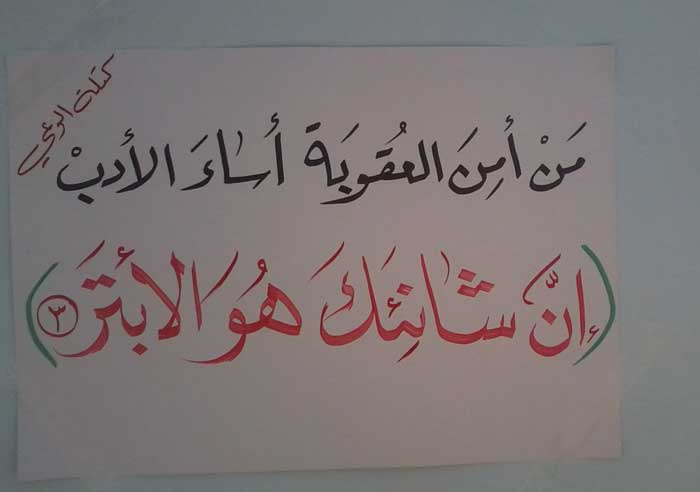 كتلة الوعي
مَنْ أَمِنَ العُقوبَة أساءَ الأدبْ
(إنَّ شانِئَكَ هُوَ الأبتَر ٣)